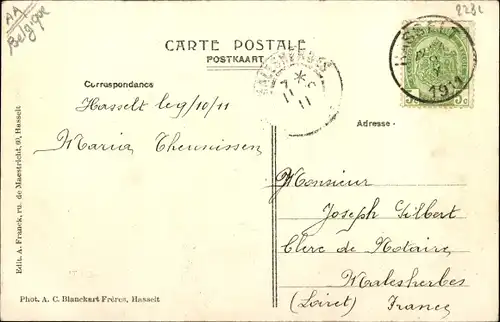 AA
Belgique
CARTE POSTALE
POSTKAART
Correspondance
Hasselt le 9/10/11
Maria Theunissen
Adresse
Monsieur
Joseph Gilbert
Clerc de Notaire
Malesherbes
(Loiret) France
HASSELT
1911
MALESHERBES
7 * 
11
11
5c 5c
Edit. A. Franck, ru. de Maestricht, 60, Hasselt
Phot. A. C. Blanckart Frères, Hasselt